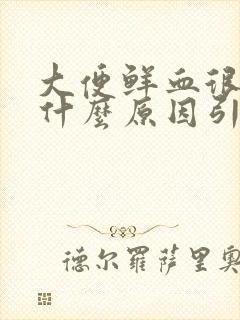 大便鲜血很
什麼原因引
德尔罗萨里奥